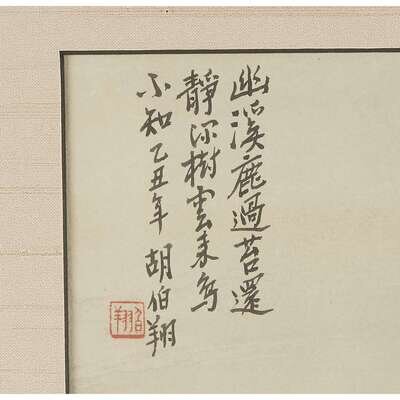 幽溪鹿過苔還
靜深樹雲來鳥
不知乙丑年胡伯翔
伯翔